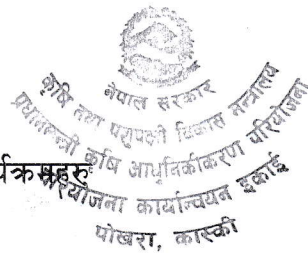 नेपाल सरकार
कृषि तथा पशुपन्छी विकास मन्त्रालय
प्रधानमन्त्री कृषि आधुनिकीकरण परियोजना
परियोजना कार्यान्वयन इकाई
पोखरा, कास्की
र्यक्रमहरु